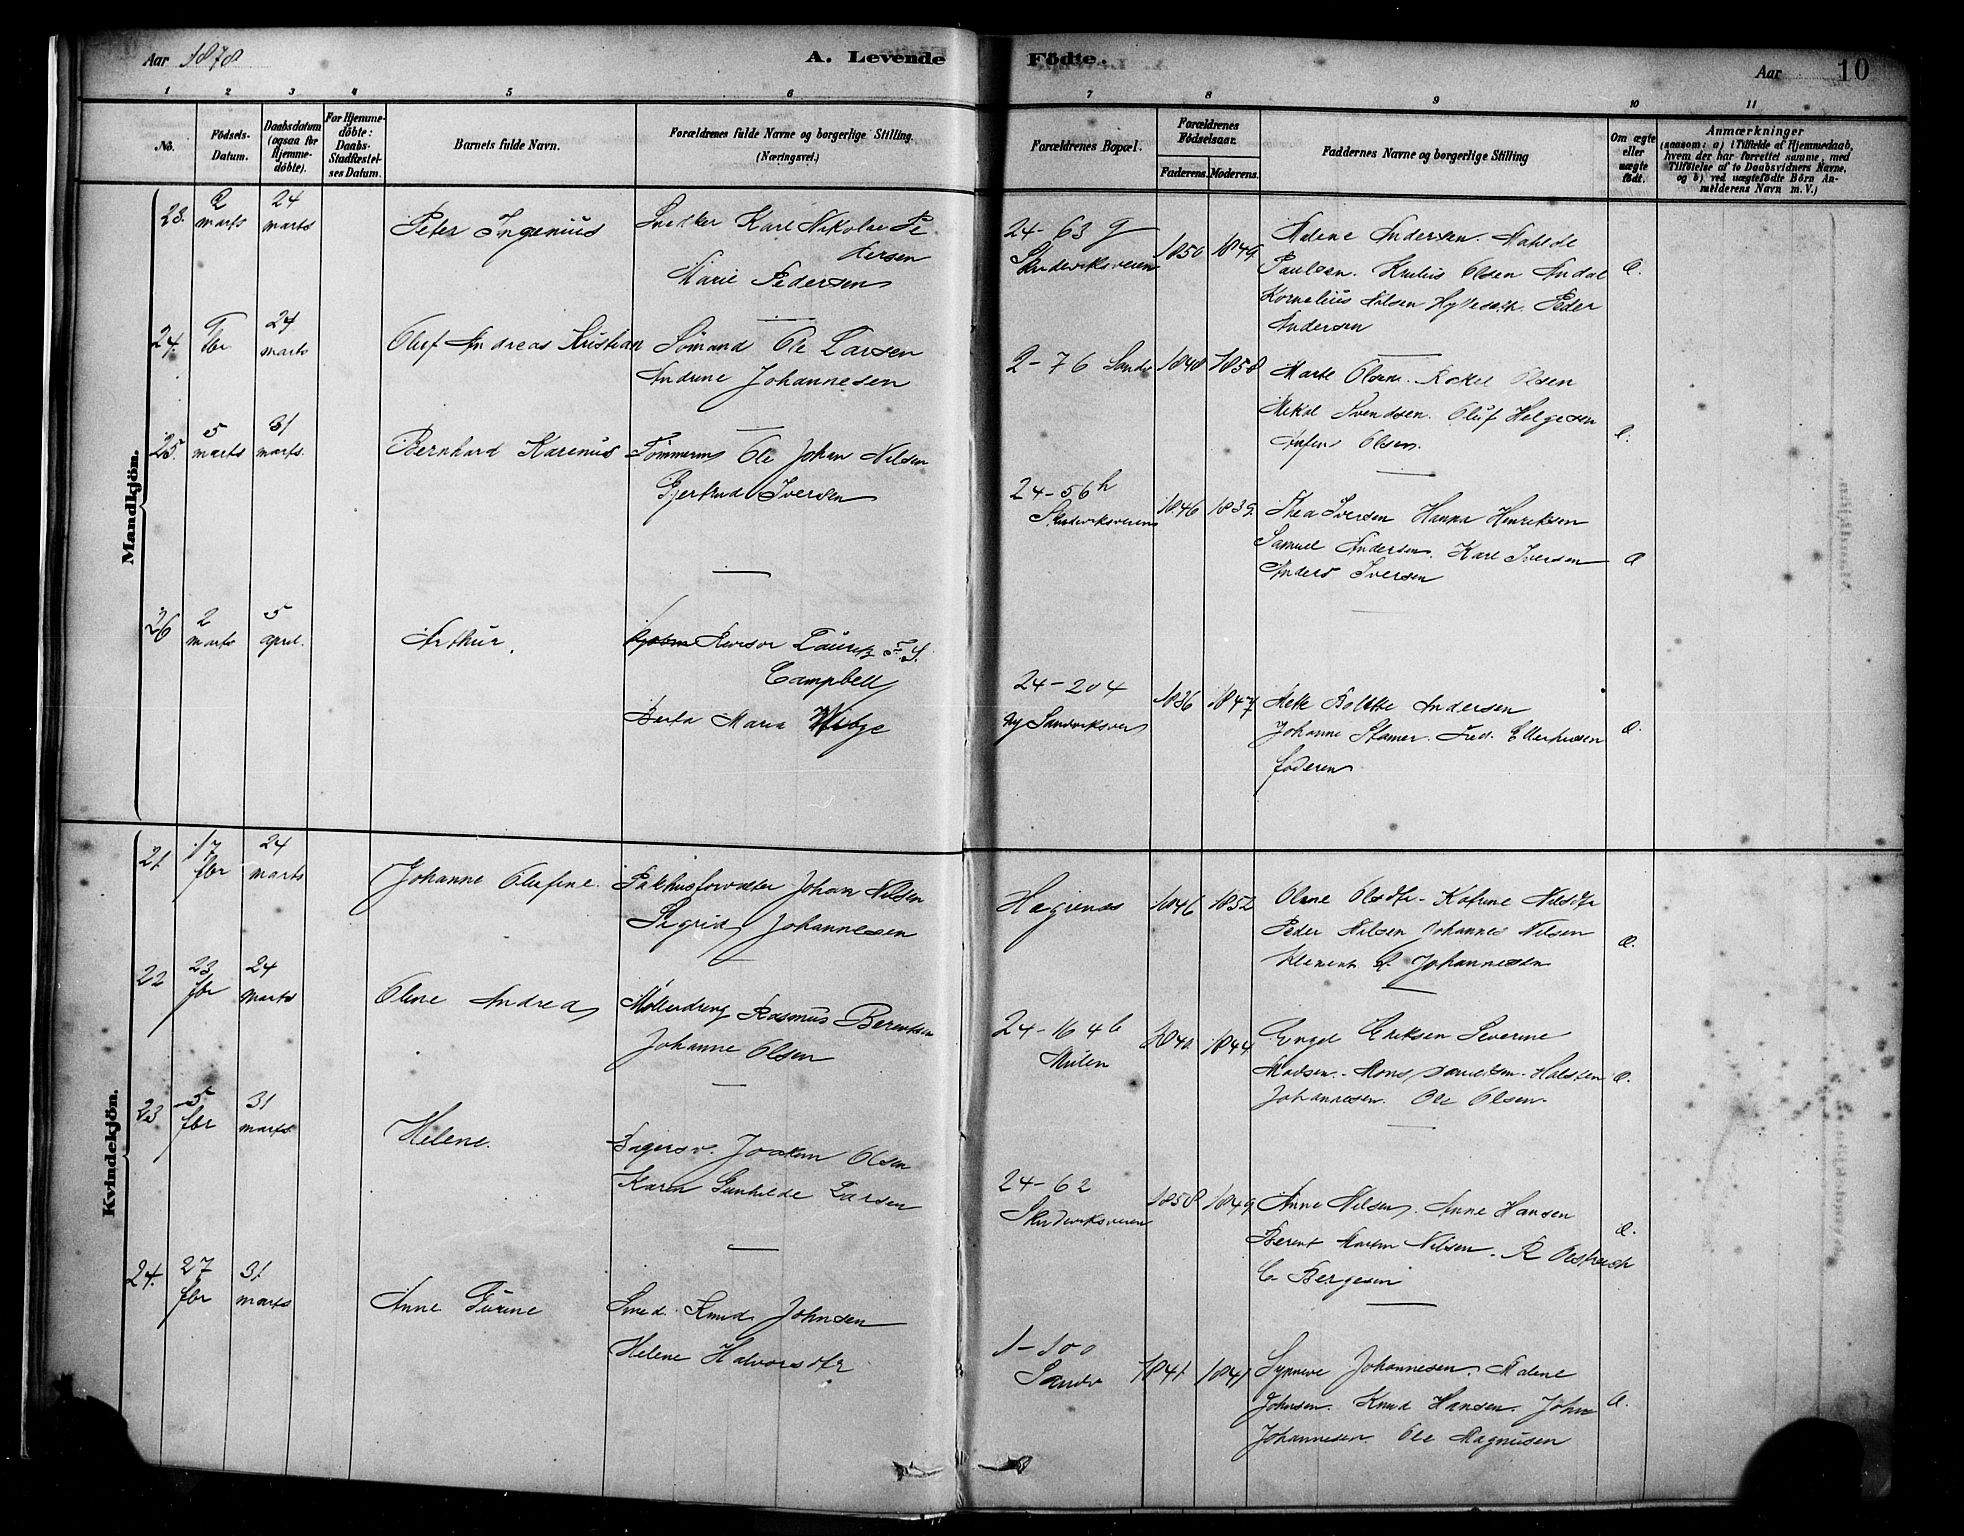 Aar 1878
A. Levende
Födte.
Aar
10
1 2 3 4 5 6 7 8 9 10 11
No.
Födsels-
Datum.
Daabsdatum
(ogsaa for
Hjemme-
döbte).
For Hjemme-
döbte:
Daabs-
Stadfæstel-
ses Datum.
Barnets fulde Navn.
Forældrenes fulde Navne og borgerlige Stilling.
(Næringsvei.)
Forældrenes Bopæl.
Forældrenes
Födselsaar.
Faderens. Moderens.
Faddernes Navne og borgerlige Stilling
Om ægte
eller
uægte
født.
Anmærkninger
(saasom: a) i Tilfælde af Hjemmedaab,
hvem der har forrettet samme, med
Tilföielse af to Daabsvidners Navne,
og b) ved uægtefödte Börn An-
melderens Navn m. V.)
Mandkjön.
23. 2 marts 24 marts
Peter Ingenius
Karl Nikolai Pe
dersen
Marie Pedersen
24-63 g
Sandviksveien
1850 1849
Malene Andersen. Matilde
Paulsen. Olsen Andal
Kornelius Nilsen Peder
Andersen
Æ.
24. fbr 24 marts
Oluf Andreas Kristian
Sömand Ole Larsen
Andrine Johannesen
2-76 Sandv
1848 1858
Marte Olsen. Rakel Olsen
Mikal Svendsen. Oluf Helgesen
Olsen.
Æ.
25. 5 marts 31 marts.
Bernhard Karenius
Tömmerm Ole Johan Nilsen
Gjertrud Iversen
24-56 h
Sandviksveien
1846 1839.
Thea Iversen Hanna Henriksen
Samuel Andersen. Karl Iversen
Anders Iversen
Æ
26 2 marts 5 april.
Arthur.
Revisor Lauritz F. S.
Campbell
Berta Maria Wibye
24-204
ny Sandviksvei
1836 1847
Mette Bolette Andersen
Johanne Stamer. Fred. Ellerhusen
faderen
Æ.
Kvindekjön.
21. 17 fbr 24 marts
Johanne Olufine.
Pakhusforvalter Johan Nilsen
Sigrid Johannesen
Hegrenæs
1846 1852
Oline Olsdtr - Katrine Nilsdtr
Peder Nilsen Johannes Nilsen
Klement L. Johannesen
Æ.
22 23 fbr 24 marts
Oline Andrea
Möllerdreng Rasmus Berentsen
Johanne Olsen
24-164 b
Mulen
1840. 1844
Engel Eriksen Severine
Madsen. Mons Danielsen. Halsten
Johannesen. Ole Olsen.
Æ.
23 5 fbr 31 marts.
Helene.
Joakim Olsen
Karen Gunhilde Larsen
24-62
Sandviksveien
1858 1849
Anne Nilsen. Anne Hansen
Berent Martin Nilsen. R Oestreich
C. Bergesen
Æ.
24. 27 fbr 31. marts
Anne Gurine
Smed. Knud Johnsen
Helene Halvorsdtr
1-100
Sandv
1841. 1841
Synneve Johannesen. Malene
Johnsen. Knud Hansen. John
Johannesen. Ole Magnusen
Æ.